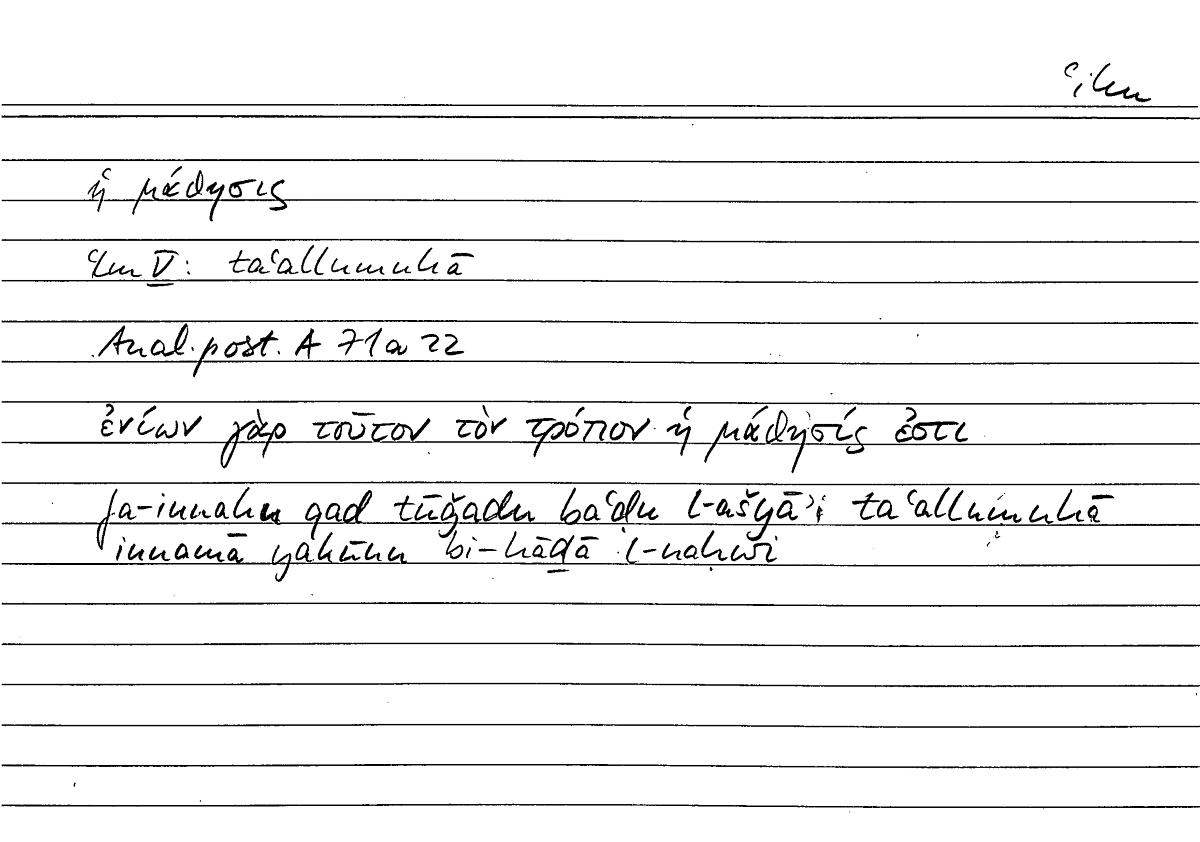 ʿilm
ἡ μάθησις
ʿlm V: taʿallumuhā
Anal. post. A 71a 22
ἐνίων γὰρ τοῦτον τὸν τρόπον ἡ μάθησίς ἐστι
fa-innahu qad tūǧadu baʿḍu l-ašyāʾi taʿallumuhā
innamā yakūnu bi-hāḏā l-naḥwi